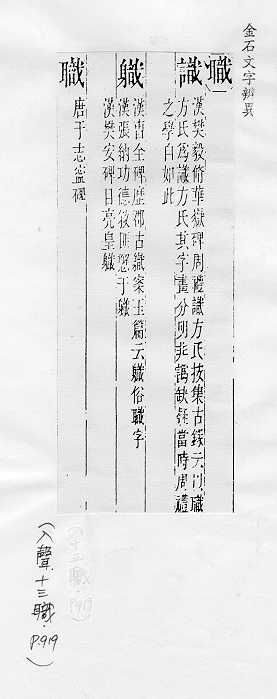 金石文字辨異
職
識
漢樊毅脩華嶽碑周禮識方氏按集古錄云以職
方氏爲識方氏其字畫分明非譌缺疑當時周禮
之學自如此
軄
漢曹全碑歷郡右軄案玉篇云軄俗職字
漢張納功德敘匪懈于軄
漢樊安碑日亮皇軄
職
唐于志寧碑
(入聲.十三職.
P.919)